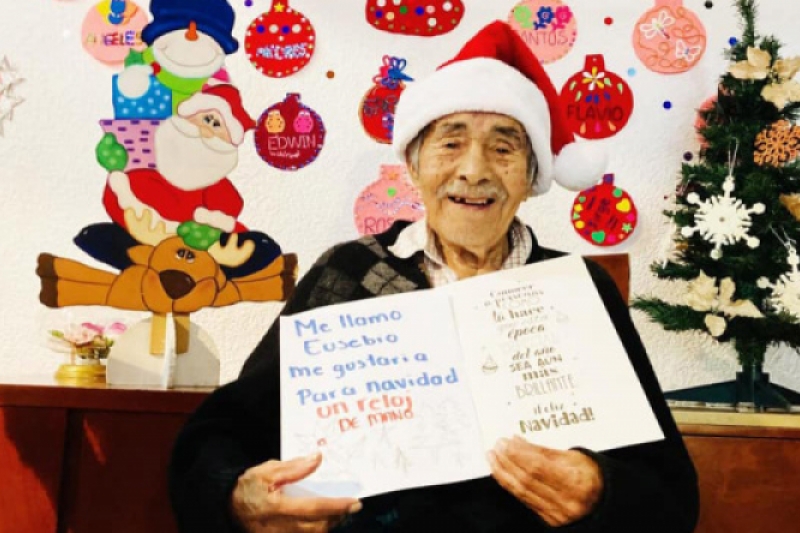 ANGELES
MILDRES
SANTOS
EDWIN
FLAVIO
ROS
Me llamo
Eusebio
me gustaria
Para navidad
un reloj
DE MANO
Conocer
a personas
lo hace
época
del año
SEA AÚN
MÁS
BRILLANTE
¡Feliz
Navidad!